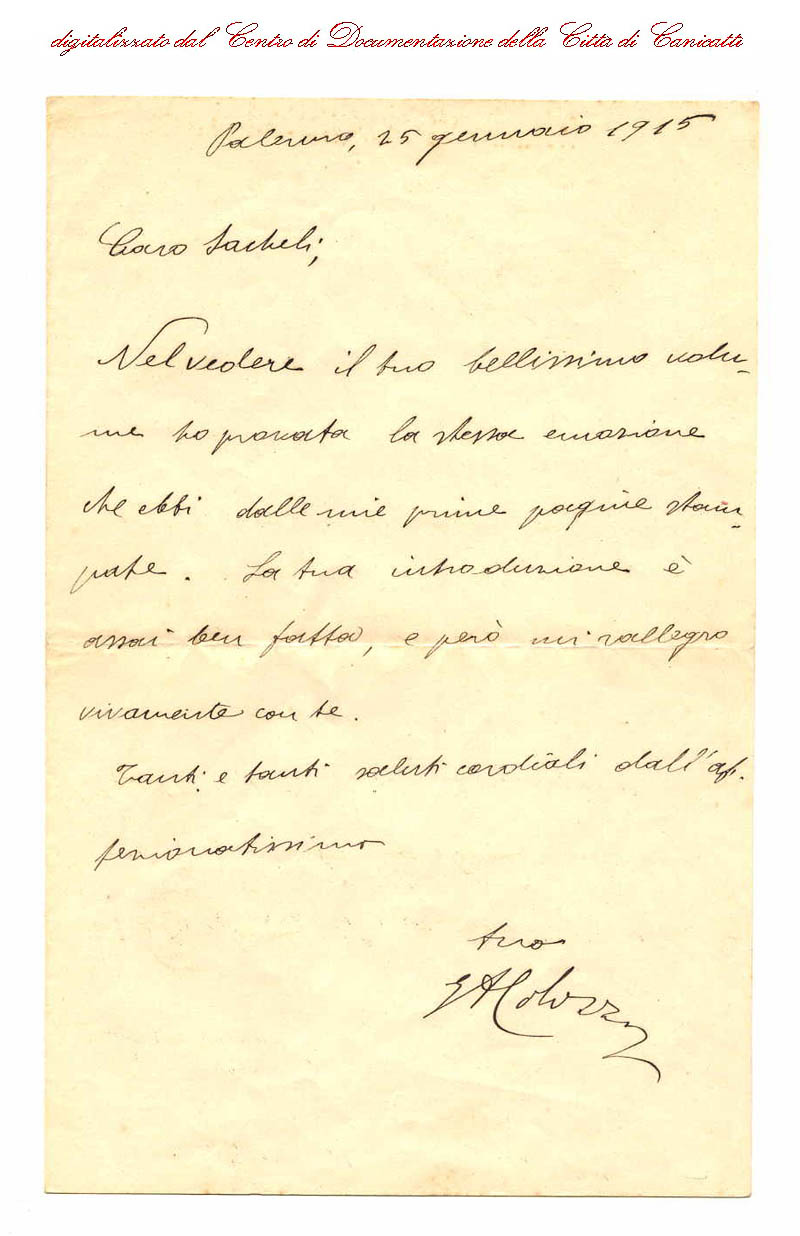 digitalizzato dal Centro di Documentazione della Città di Canicattì
Palermo, 25 gennaio 1915
Caro Sacheli,
Nel vedere il tuo bellissimo volu-
me ho provata la stessa emozione
che ebbi dalle mie prime pagine stam-
pate. La tua introduzione è
assai ben fatta, e però mi rallegro
vivamente con te.
Tanti e tanti saluti cordiali dall'af-
fezionatissimo
tuo
GAColozza